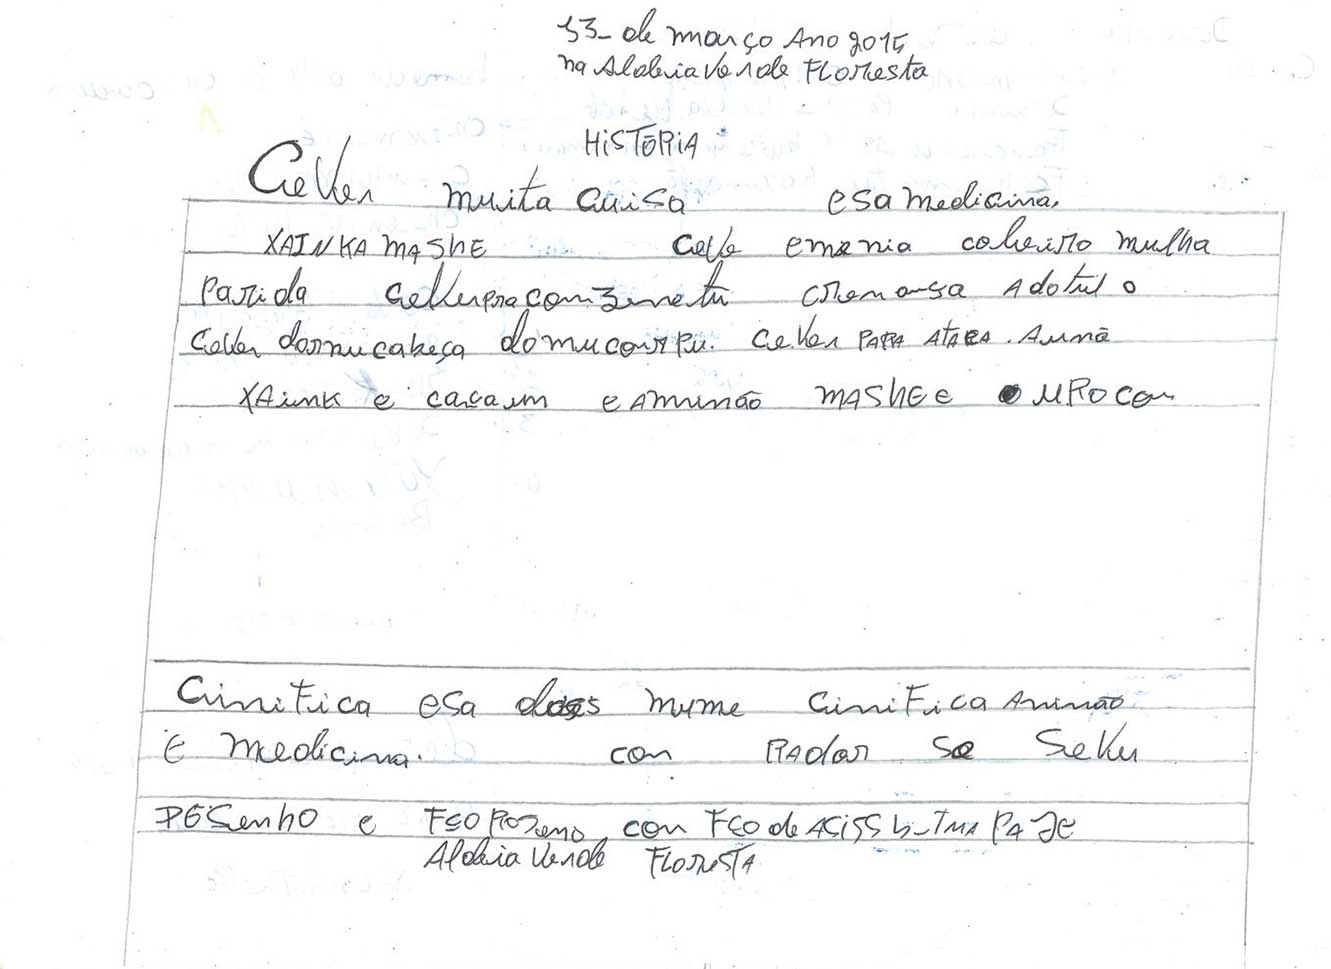 13- de março Ano 2015
na Aldeia Verde FLOResta
HiSTÓRiA
CeVer muita cuisa esa medicina.
XAINKA MAShE CeVe emenia coheirto mulha
Parida CeVer pra con Adotul o
CeVer dornucabeça domucorpu. CeVer PARA ATARA.
XAink e cacaum e Aminão MAShE e uRocan
CiniFica esa mume CiniFica Aninão
E medicina. con RAdor Se SeVu
DESenho e FSO ROSeno con FCO de ACiSS L-TMA PA JE
Aldeia Verde FLOReSTA